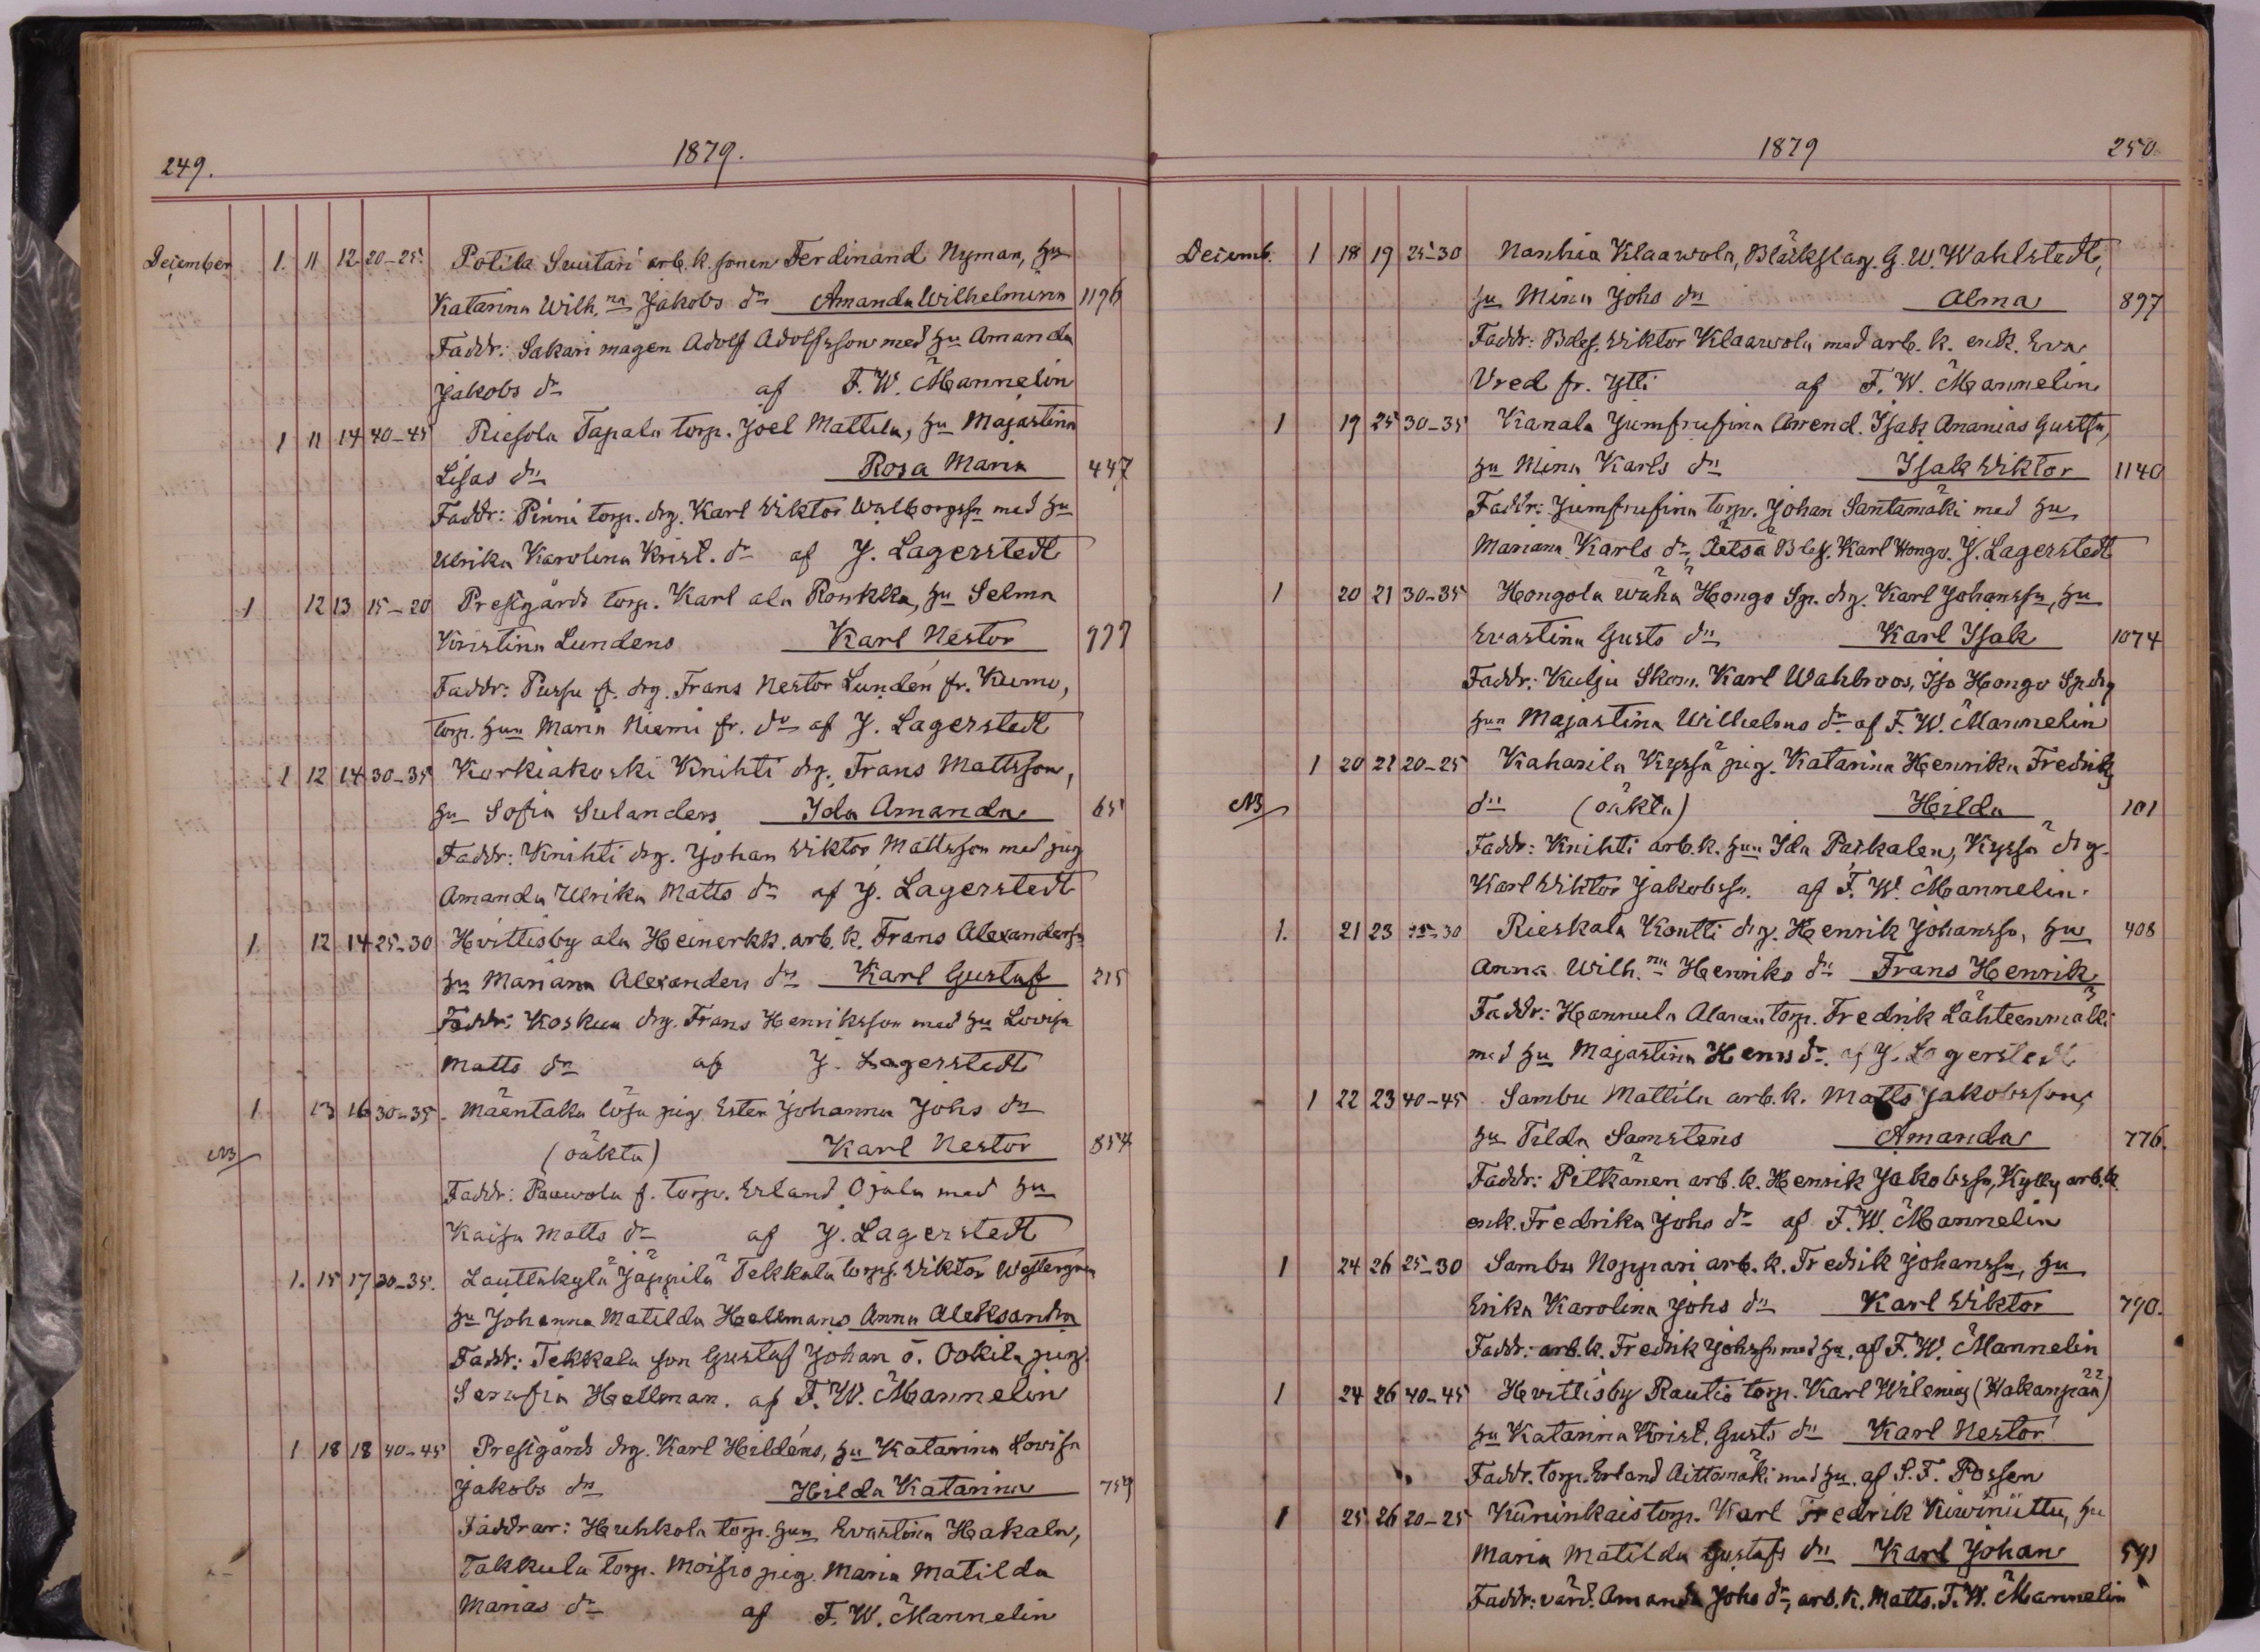 249.
1879.
December 1. 11 12 20-25. Potila Suutari arb. k. sonen Ferdinand Nyman, hu
Katarina Wilh.na Jakobs dr Amanda Wilhelmina 1196
Faddr: Sakari mågen Adolf Adolfsson med hu Amanda
Jakobs dr af F. W. Mannelin
1 11 14 40-45 Riesola Tapala torp. Joel Mattila, hu Majastina
Lisas dr Rosa Maria 447
Faddr: Pinni torp. drg. Karl Wiktor Walborgssn med hu
Ulrika Karolina Krist. dr af J. Lagerstedt
1 12 13 15-20 Prestgårds torp. Karl ala Ronkka, hu Selma
Kristina Lundens Karl Nestor 977
Faddr: Pussu f. drg. Frans Nestor Lundén fr. Kumo,
torp. hun Maria Niemi fr. do af J. Lagerstedt
1 12 14 30-35 Karkiakoski Knihti drg. Frans Mattsson,
hu Sofia Sulanders Ida Amanda 65
Faddr: Knihti drg. Johan Wiktor Mattsson med pig
Amanda Ulrika Matts dr af J. Lagerstedt
1 12 14 25-30 Hvittisby ala Heinerkk. arb. k. Frans Alexanderssn
hu Mariana Alexanders dr Karl Gustaf 215
Faddr: Koskua drg. Frans Henriksson med hu Lovisa
Matts dr af J. Lagerstedt
1 13 16 30-35. Mäentaka lösa pig Ester Johanna Johs dr
NB (oäkta) Karl Nestor 854
Faddr: Paawola f. torp. Erland Ojala med hu
Kaisa Matts dr af J. Lagerstedt
1. 15 17 30-35. Lauttakylä Jäppilä Tekkala torp. Wiktor Westergren
hu Johanna Matilda Hellmans Anna Aleksandra
Faddr: Tekkala son Gustaf Johan o. Ookila pig.
Serafia Hellman. af F. W. Mannelin
1 18 18 40-45 Prestgårds drg. Karl Hildéns, hu Katarina Lovisa
Jakobs dr Hilda Katarina 759
Faddrar: Huhkola torp. hun Evastina Hakala,
Takkula torp. Moisio pig. Maria Matilda
Marias dr af F. W. Mannelin
1879
250
Decemb. 1 18 19 25-30 Nanhia Klaawola, Bläckslag. G. W. Wahlstedt,
hu Mina Johs dr Alma 897
Faddr: Bdes. Wiktor Klaawola med arb. k. enk. Eva
Vred fr. Ytli af F. W. Mannelin
1 19 25 30-35 Kanala Jumfrufina Arrend. Isak Ananias Gustfsn,
hu Mina Karls dr Isak Wiktor 1140
Faddr: Jumfrufina torp. Johan Santamäki med hu
Mariana Karls dr, Äetsä Bdes. Karl Hongo. J. Lagerstedt
1 20 21 30-35 Hongola wähä Hongo Sp. drg. Karl Johanssn, hu
Evastina Gusts dr Karl Isak 1074
Faddr: Kulju Skom. Karl Wahlroos, Iso Hongo Sp. drg
hun Majastina Wilhelms dr af F. W. Mannelin
1 20 21 20-25 Kaharila Kyssä pig. Katarina Henrika Fredriks
NB dr (oäkta) Hilda 101
Faddr: Knihti arb. k. hun Ida Paikalen, Kyssä drg.
Karl Wiktor Jakobssn. af F. W. Mannelin.
1. 21 23 25-30 Rieskala Koutti drg. Henrik Johanssn, hu 408
Anna Wilh.na Henriks dr Frans Henrik
Faddr: Hannula Alanen torp. Fredrik Lähteenmäki
med hu Majastina Henrs dr. af J. Lagerstedt
1 22 23 40-45 Sambu Mattila arb. k. Matts Jakobsson,
hu Tilda Samstens Amanda 776.
Faddr: Pitkänen arb. k. Henrik Jakobssn, Kylly arb. k.
enk. Fredrika Johs dr af F. W. Mannelin
1 24 26 25-30 Sambu Noppari arb. k. Fredrik Johanssn, hu
Erika Karolina Johs dr Karl Wiktor 790.
Faddr: arb. k. Fredrik Johssn med hu, af F. W. Mannelin
1 24 26 40-45 Hvittisby Rautio torp. Karl Wilenius (Hakanpää)
hu Katarina Krist. Gusts dr Karl Nestor
Faddr. torp. Erland Aittamäki med hu. af S. F. Possen
1 25 26 20-25 Kuninkais torp. Karl Fredrik Kiwiniittu, hu
Maria Matilda Gustafs dr Karl Johan 591
Faddr: värd. Amanda Johs dr, arb. k. Matts. F. W. Mannelin